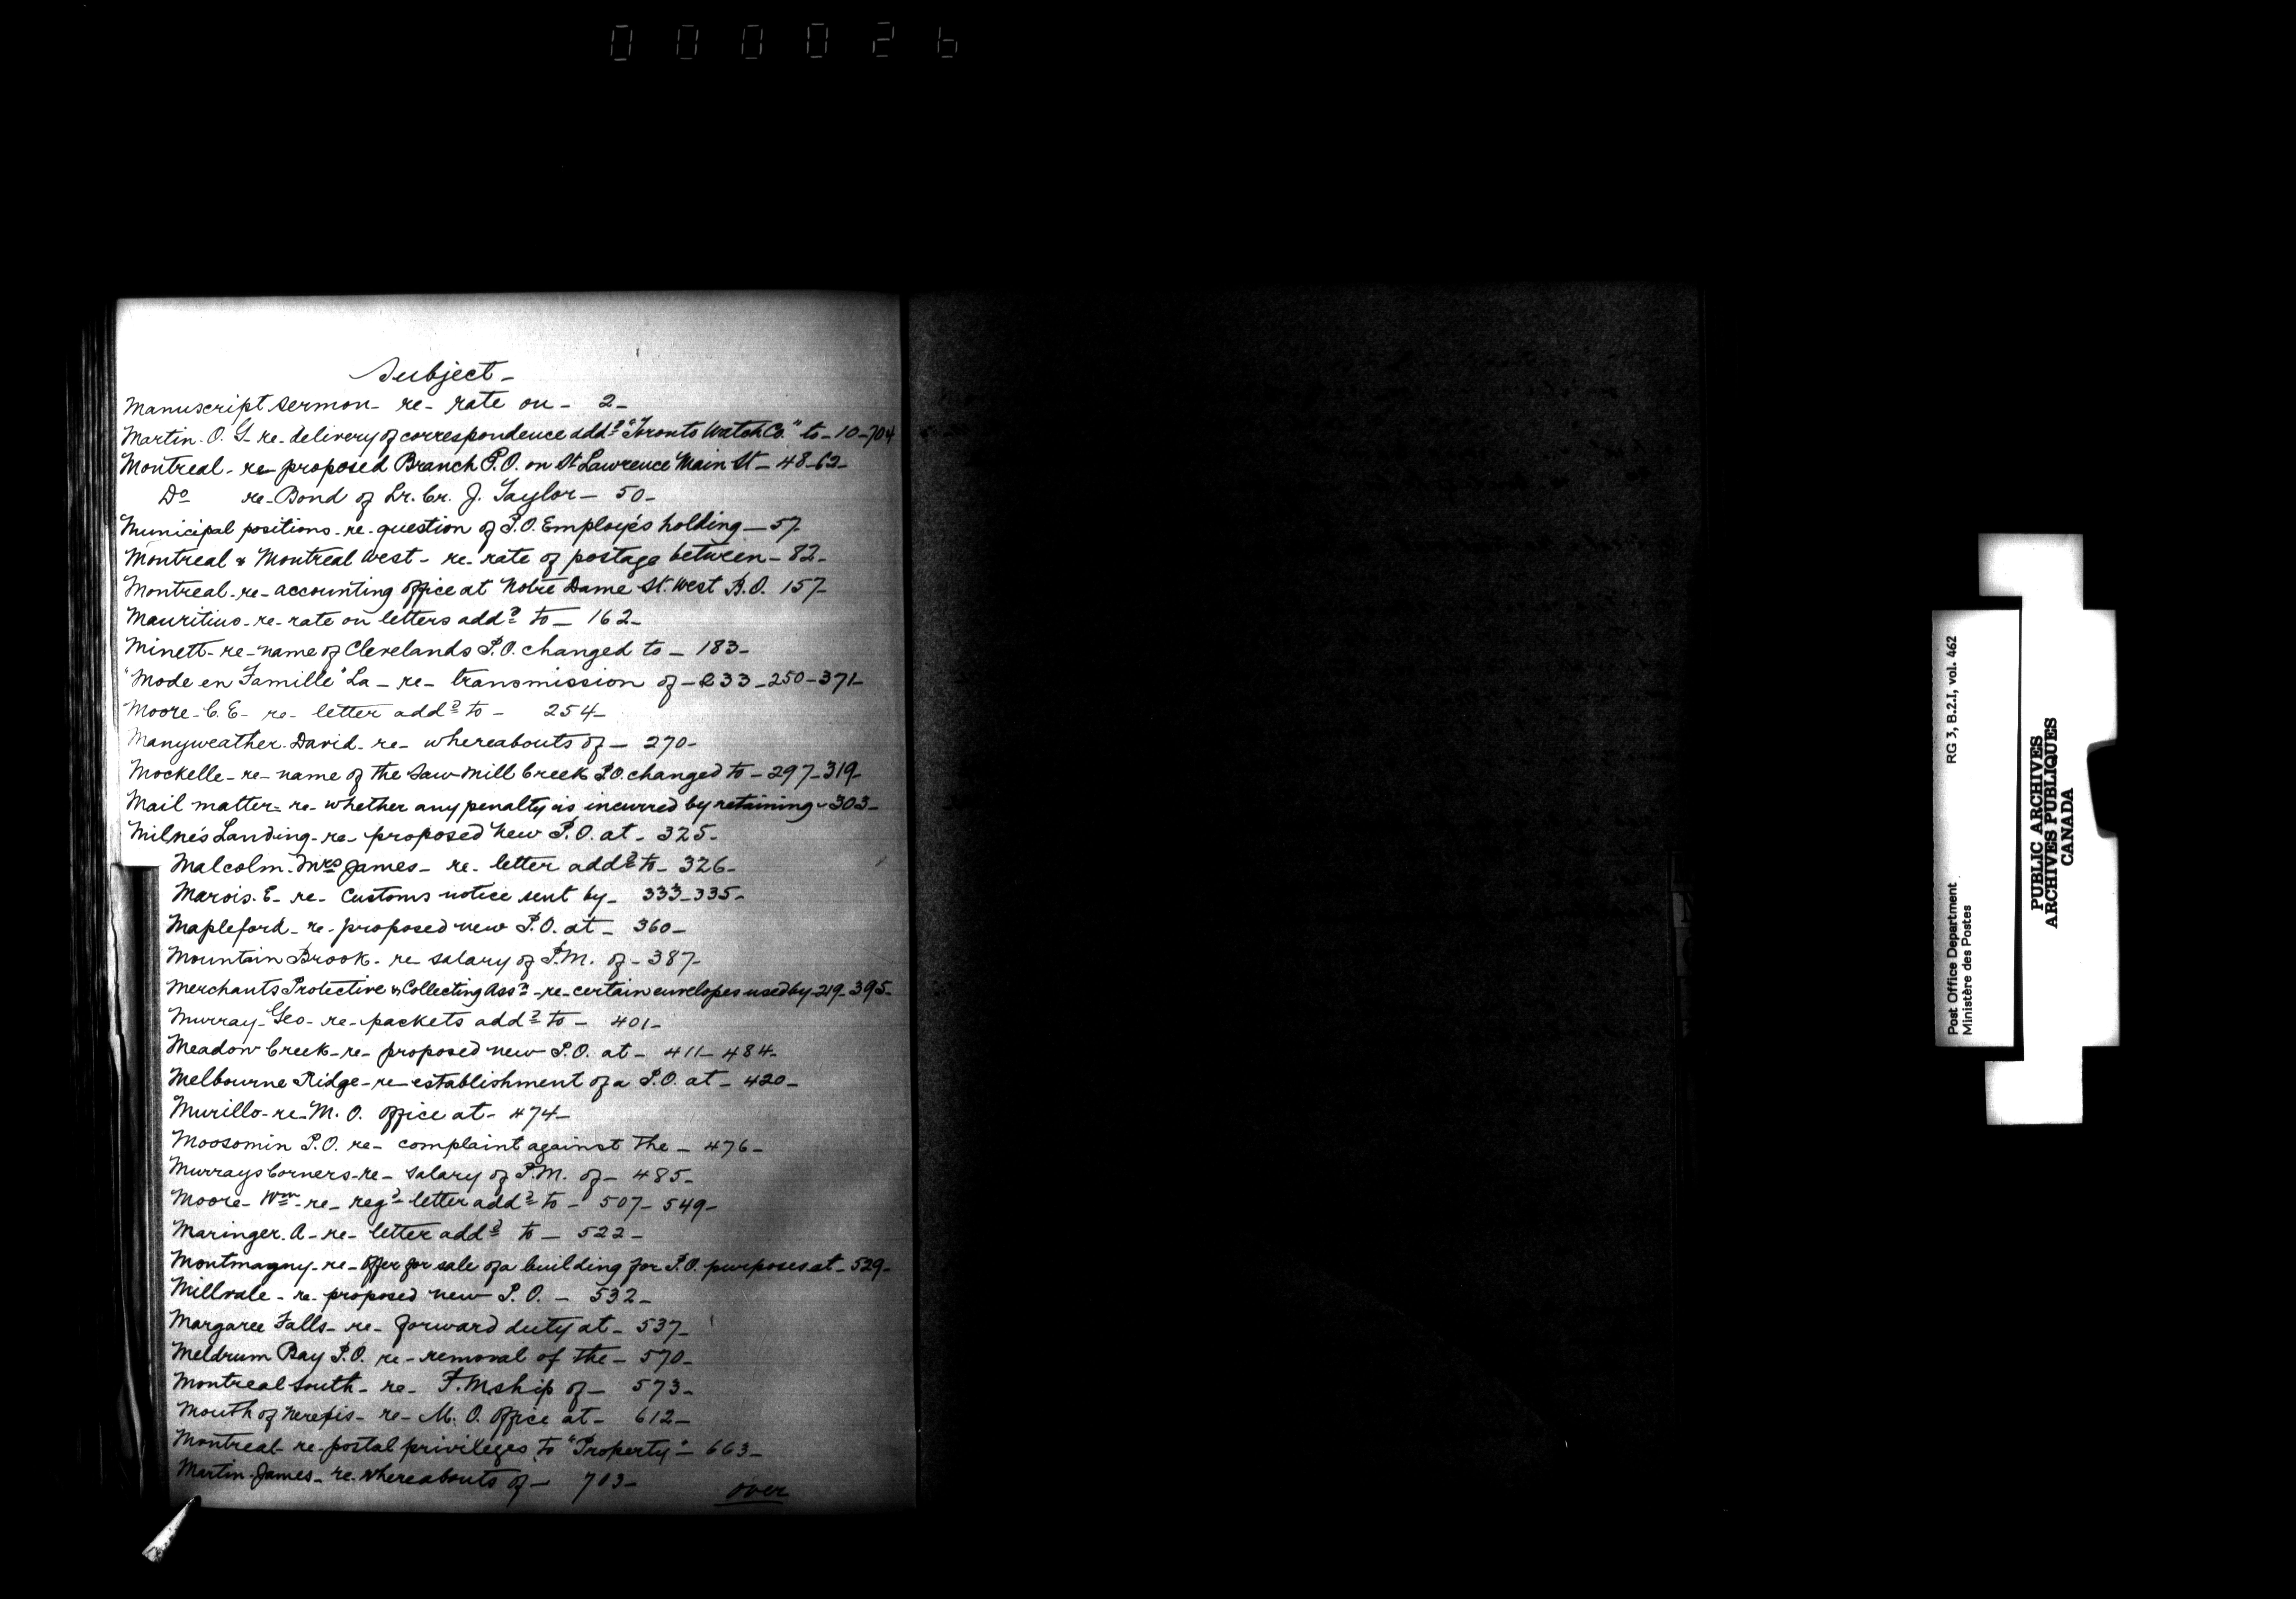 000026
Subject -
Manuscript sermon - re - rate on - 2 -
Martin. O. G - re - delivery of correspondence addd "Toronto Watch Co." to - 10 - 704
Montreal - re - proposed Branch P.O. on St Lawrence Main St - 48 - 62 -
Do re - Bond of Lr. Cr. J. Taylor - 50 -
Municipal positions - re - question of P.O. Employés holding - 57
Montreal & Montreal West - re - rate of postage between - 82 -
Montreal - re - accounting office at Notre Dame St. West B.O. 157 -
Mauritius - re - rate on letters addd to - 162 -
Minett - re - name of Clevelands P.O. changed to - 183 -
"Mode en Famille" La - re - transmission of - 233 - 250 - 371 -
Moore - C. E - re - letter addd to - 254 -
Manyweather. David - re - whereabouts of - 270 -
Mockelle - re - name of the Saw-Mill Creek P.O. changed to - 297 - 319 -
Mail matter - re - whether any penalty is incurred by retaining - 303 -
Milne's Landing - re - proposed new P.O. at - 325 -
Malcolm. Mrs James - re - letter addd to - 326 -
Marois. E - re - Customs notice sent by - 333 - 335 -
Mapleford - re - proposed new P.O. at - 360 -
Mountain Brook - re - salary of P.M. of - 387 -
Merchants Protective & Collecting Assn - re - certain envelopes used by - 219 - 395 -
Murray - Geo - re - packets addd to - 401 -
Meadow Creek - re - proposed new P.O. at - 411 - 484 -
Melbourne Ridge - re - establishment of a P.O. at - 420 -
Murillo - re - M. O. office at - 474 -
Moosomin P.O. re - complaint against the - 476 -
Murrays Corners - re - salary of P.M. of - 485 -
Moore - Wm - re - regd letter addd to - 507 - 549 -
Maringer. A - re - letter addd to - 522 -
Montmagny - re - offer for sale of a building for P.O. purposes at - 529 -
Millvale - re - proposed new P.O. - 532 -
Margaree Falls - re - forward duty at - 537 -
Meldrum Bay P.O. re - removal of the - 570 -
Montreal South - re - P.Mship of - 573 -
Mouth of Nerepis - re - M. O. Office at - 612 -
Montreal - re - postal privileges to "Property" - 663 -
Martin. James - re - whereabouts of - 703 -
over
RG 3, B.2.1, vol. 462
Post Office Department
Ministère des Postes
PUBLIC ARCHIVES
ARCHIVES PUBLIQUES
CANADA